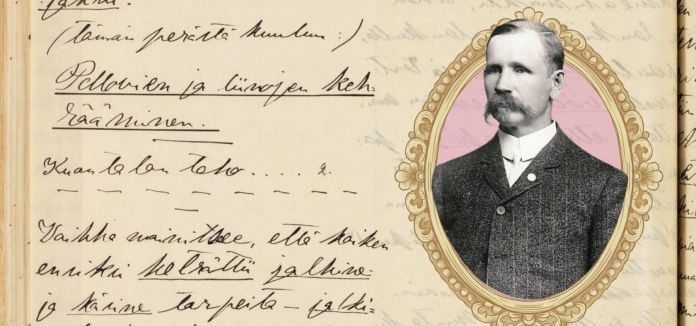 (tämän perästä kuuluu:)
Pellovien ja liinojen keh-
rääminen.
Kuontalan teko .... 2.
Vaikka mainitsee, että kaiken
ensiksi kehrättü jalkine-
ja käsine tarpeita – jalki-